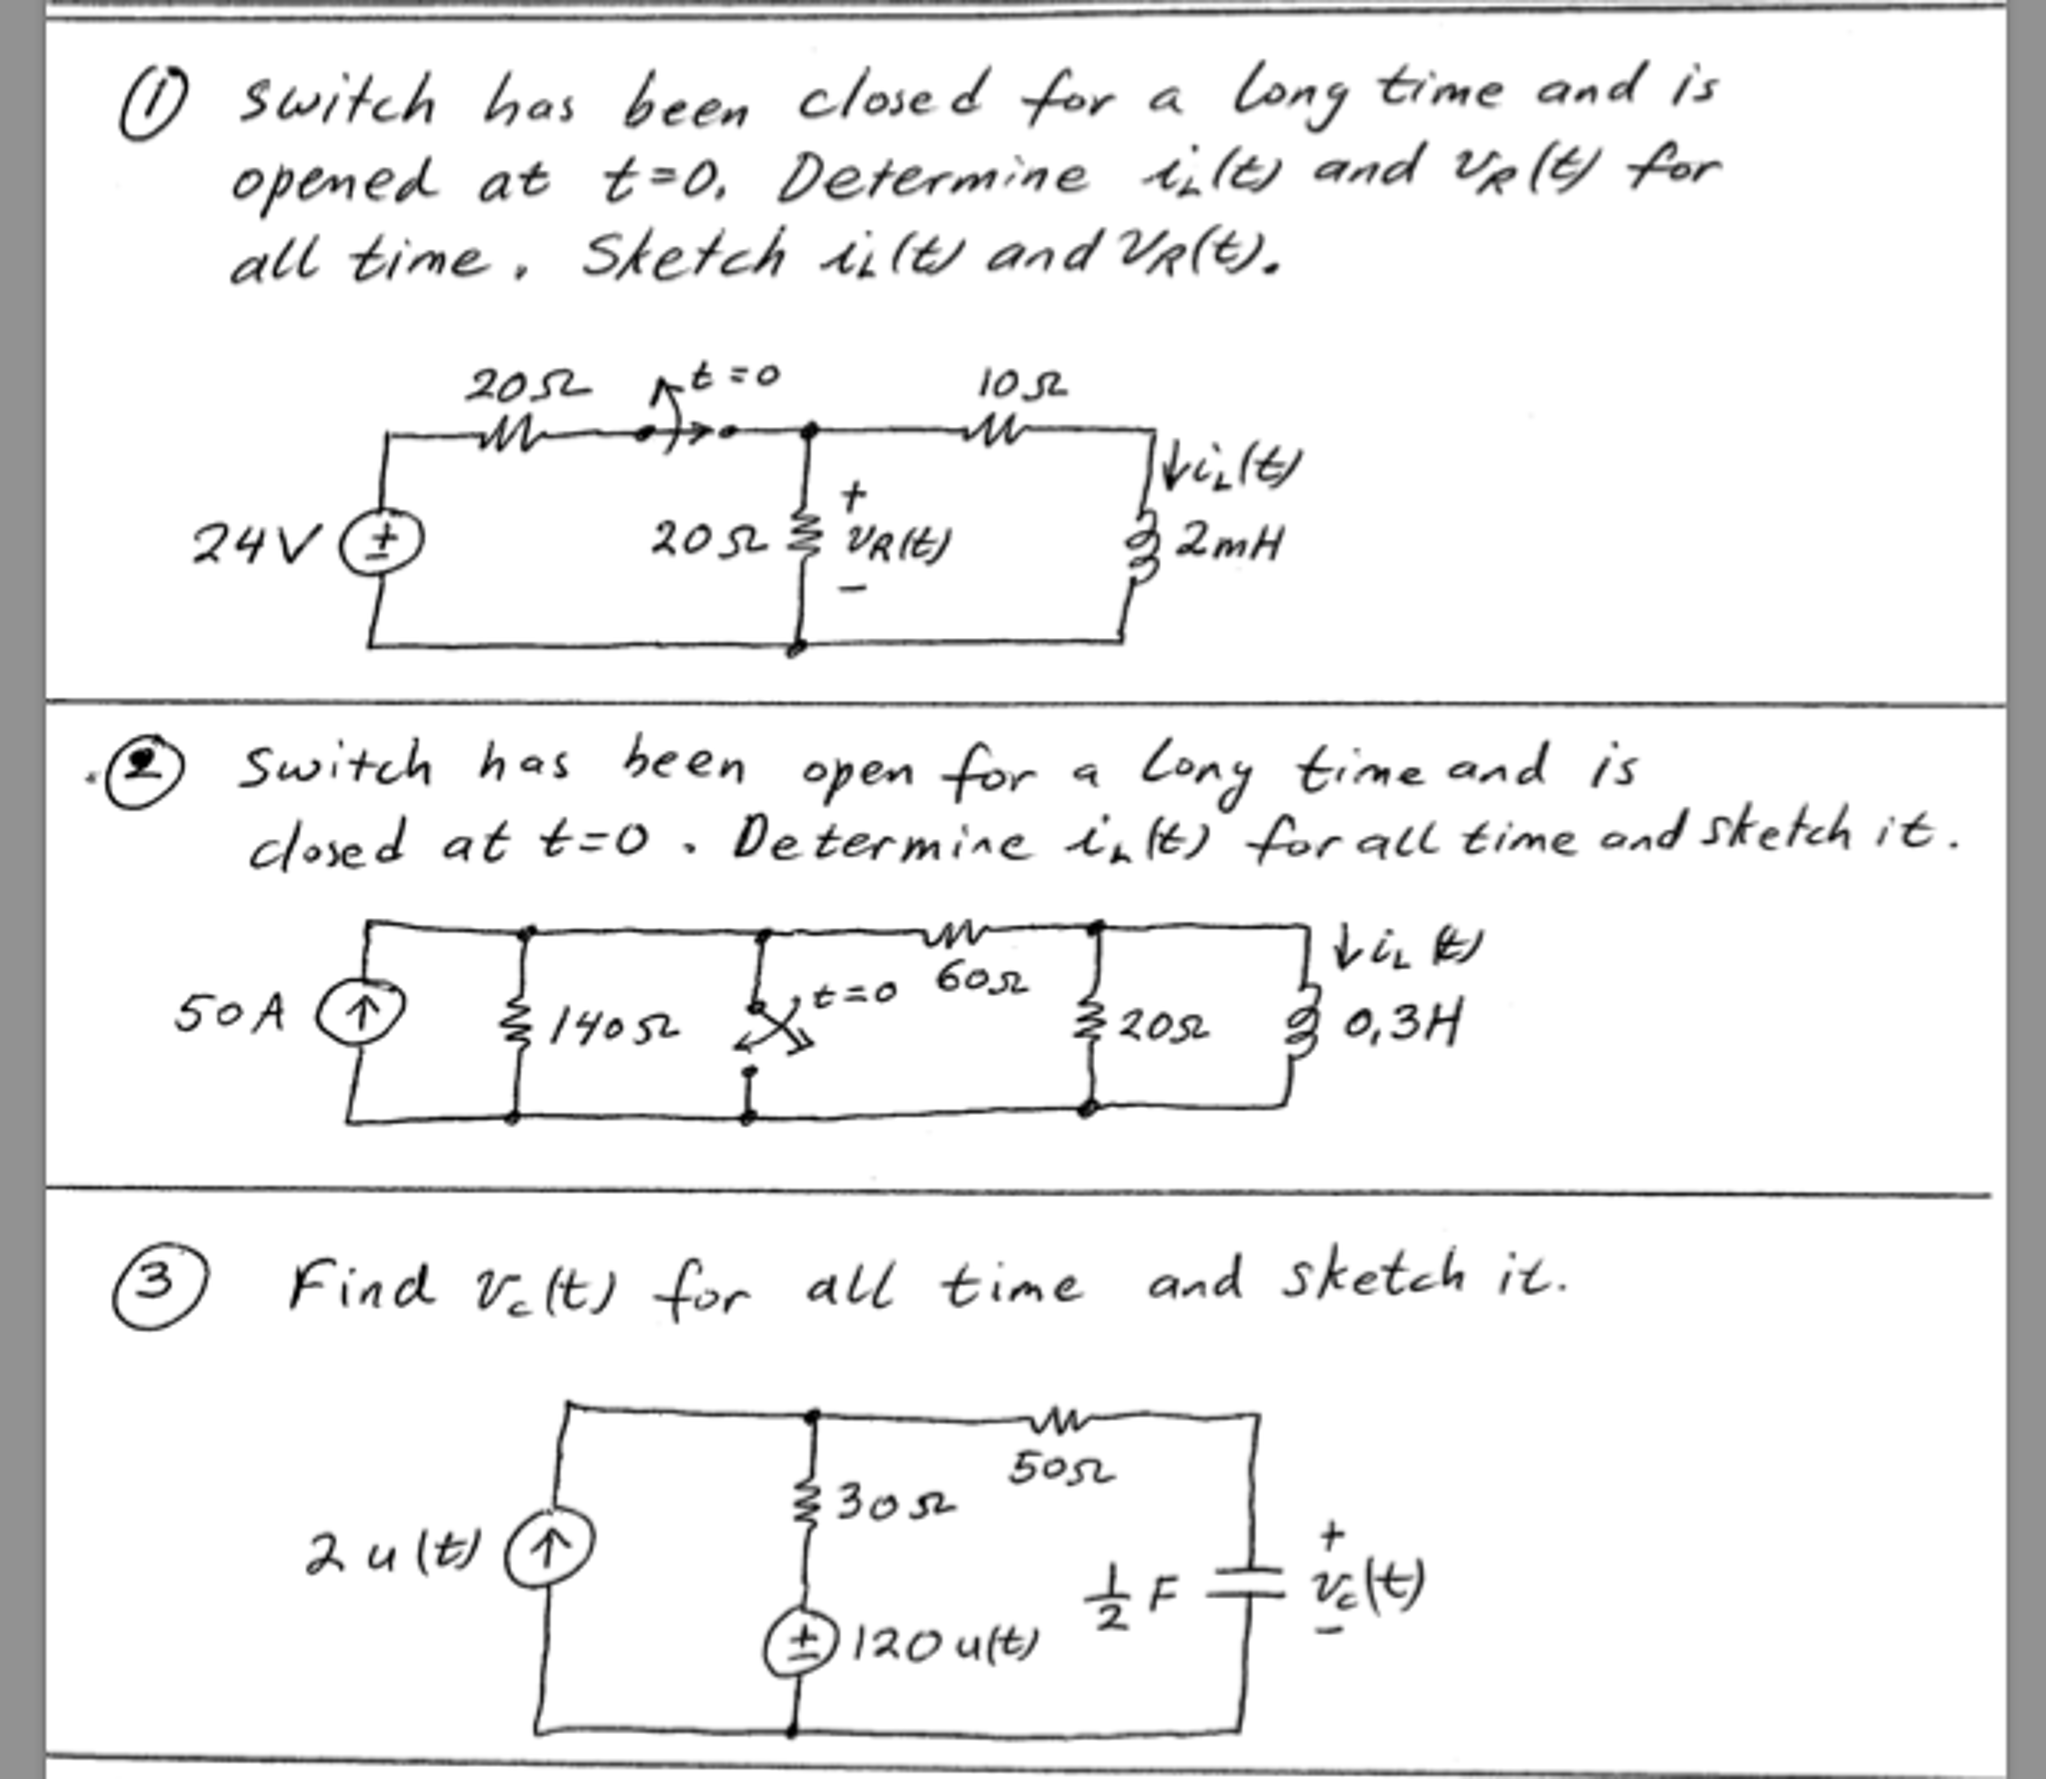 ① Switch has been closed for a long time and is
opened at t=0. Determine i_L(t) and v_R(t) for
all time. Sketch i_L(t) and v_R(t).
20Ω t=0 10Ω
↓i_L(t)
24V ± 20Ω + v_R(t) − 2mH
② Switch has been open for a long time and is
closed at t=0. Determine i_L(t) for all time and sketch it.
↓i_L(t)
50A ↑ 140Ω t=0 60Ω 20Ω 0,3H
③ Find v_c(t) for all time and sketch it.
50Ω
30Ω
2u(t) ↑ ½ F + v_c(t) −
± 120u(t)